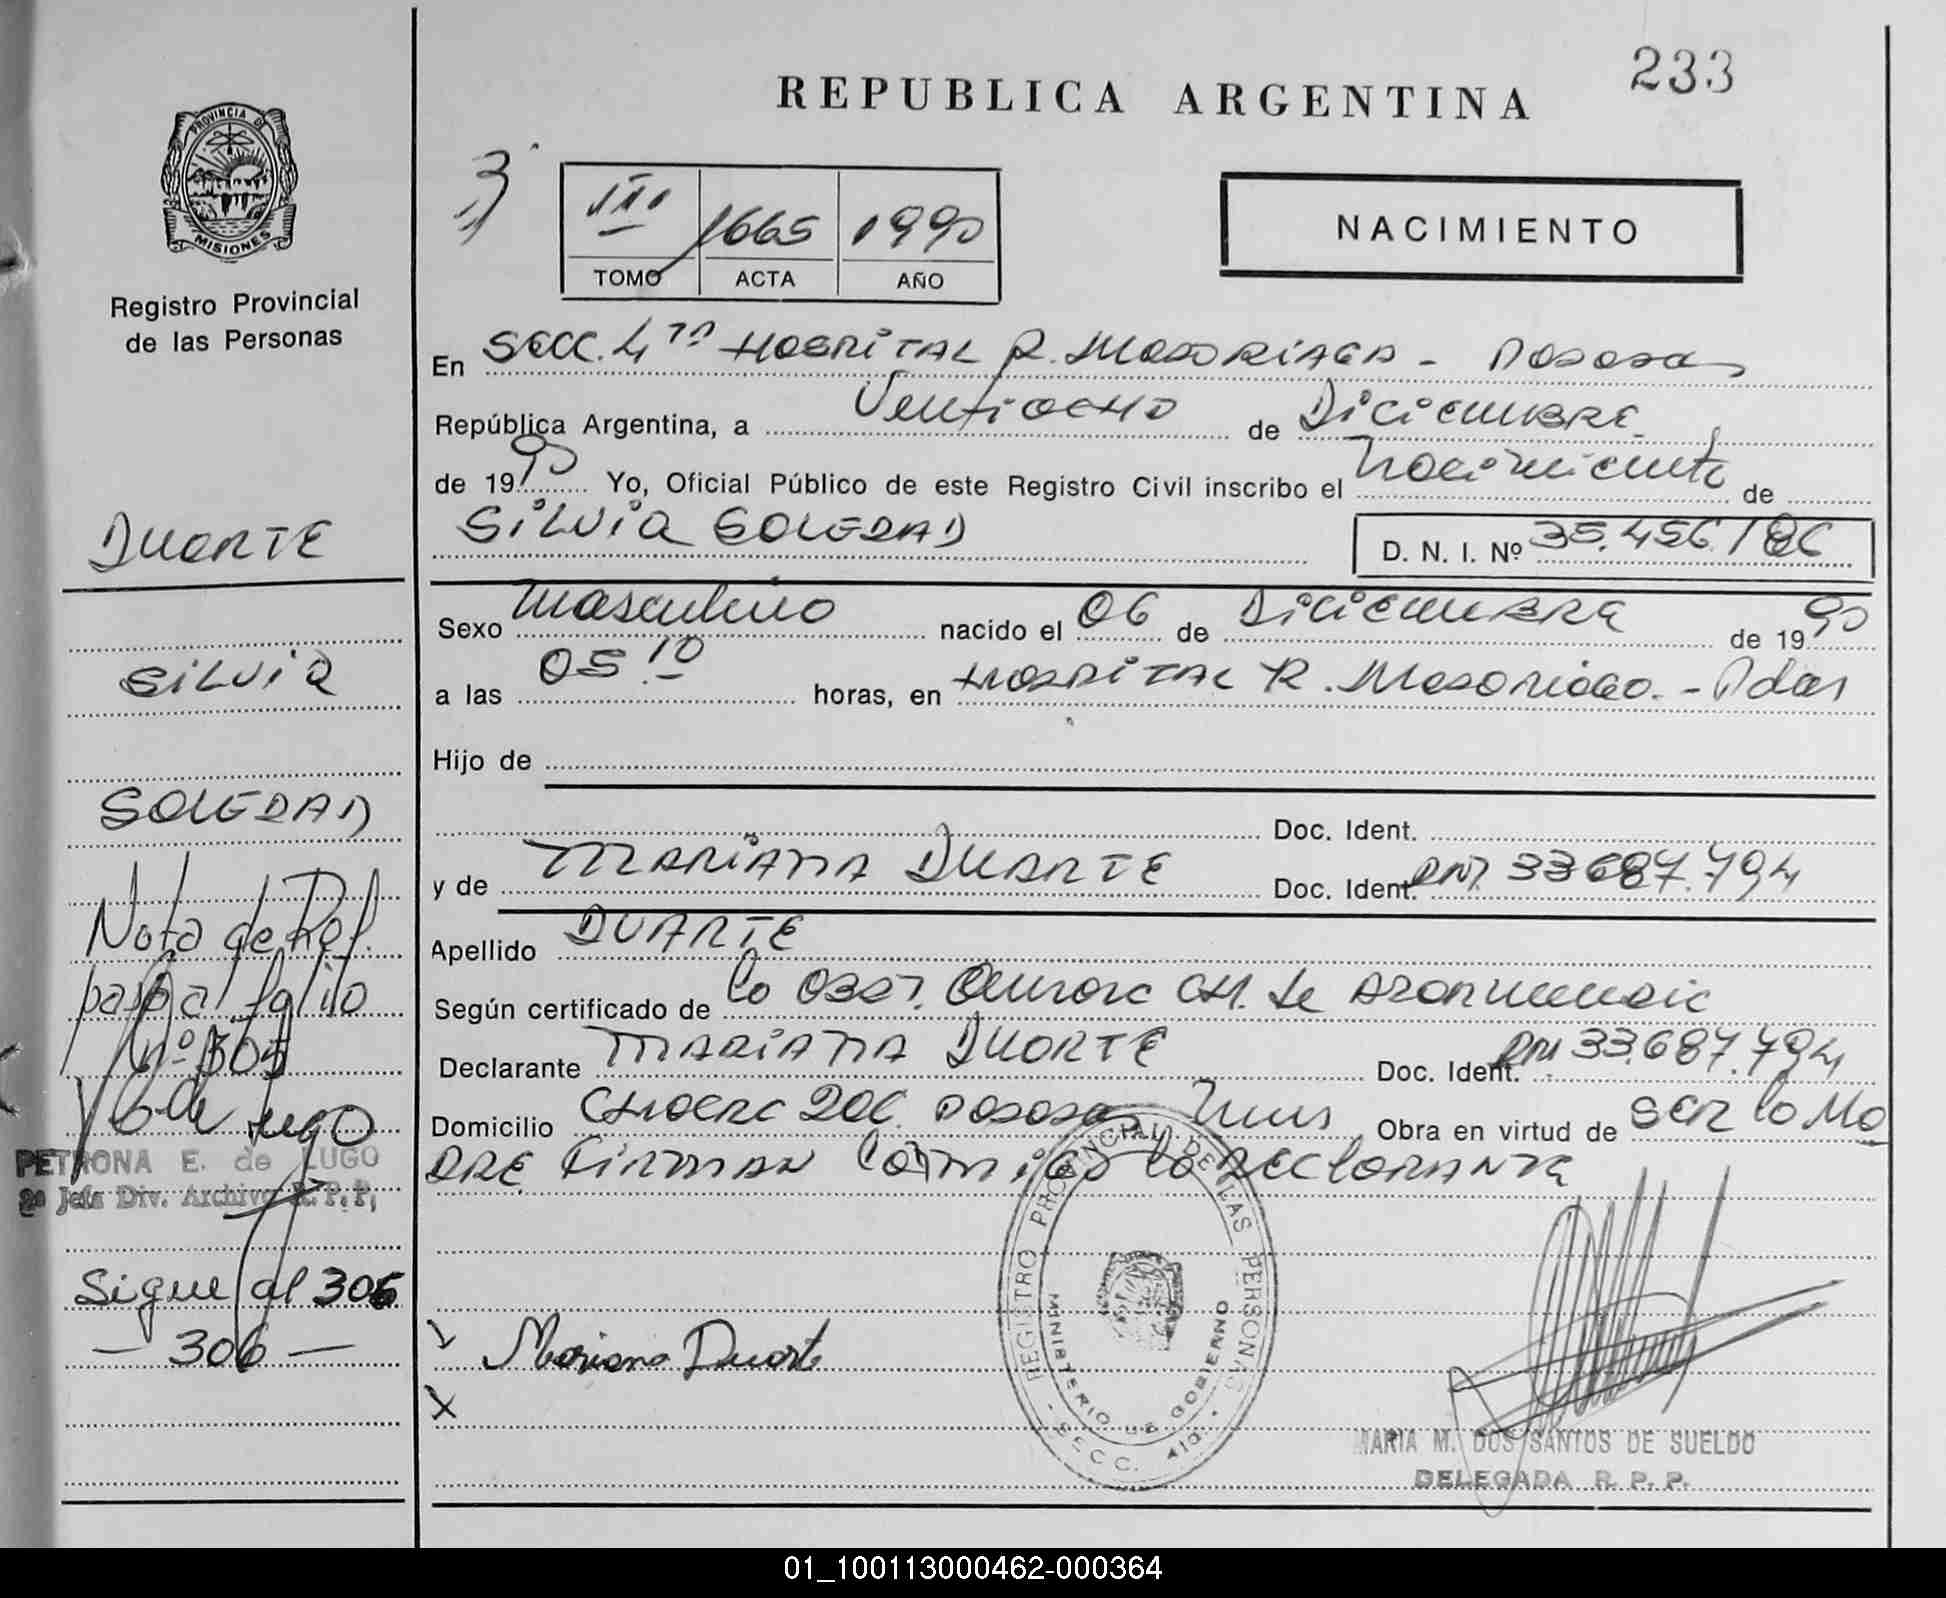 233
REPUBLICA ARGENTINA
PROVINCIA DE
MISIONES
Registro Provincial
de las Personas
3)
III 1665 1990
TOMO ACTA AÑO
NACIMIENTO
En Secc. 4ta Hospital R. Madariaga - Posadas
República Argentina, a Ventiocho de Diciembre
de 1990 Yo, Oficial Público de este Registro Civil inscribo el nacimiento de
Silvia Soledad
D. N. I. Nº 35.456.186
DUARTE
Silvia
SOLEDAD
Sexo Masculino nacido el 06 de Diciembre de 1990
a las 05.10 horas, en Hospital R. Madariaga. - Pdas
Hijo de
Doc. Ident.
y de Mariana Duarte Doc. Ident. DNI 33.687.794
Apellido DUARTE
Según certificado de la Obst. CH. de
Declarante Mariana Duarte Doc. Ident. DNI 33.687.794
Domicilio Posadas Mnes Obra en virtud de ser la Ma
dre Firman conmigo la declarante
Nota de Ref.
pasa al folio
nº 305
de Lugo
PETRONA E. de LUGO
2ª Jefa Div. Archivo R. P. P.
Sigue al 306
— 306 —
Mariana Duarte
X
REGISTRO PROVINCIAL DE LAS PERSONAS
MINISTERIO DE GOBIERNO
- SECC. 4ta. -
MARIA M. DOS SANTOS DE SUELDO
DELEGADA R. P. P.
01_100113000462-000364